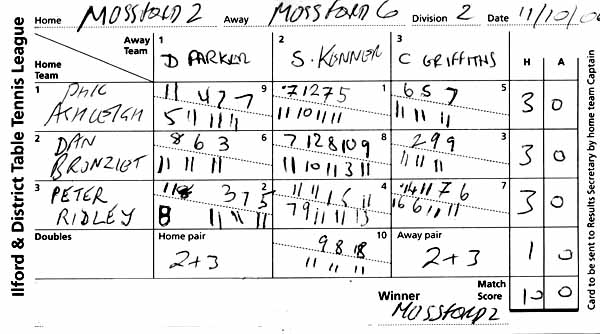 Ilford & District Table Tennis League
Home MOSSFORD 2 Away MOSSFORD 6 Division 2 Date 11/10/06
Away Team 1 D PARKER 2 S. KENNER 3 C GRIFFITHS H A
Home Team
1 PHIL ASHLEIGH 9 1 5 3 0
11 4 7 7
7 12 7 5
6 5 7
5 11 11 11
11 10 11 11
11 11 11
2 DAN 6 8 3 3 0
8 6 3
7 12 8 10 9
2 9 9
11 11 11
11 10 11 3 11
11 11 11
3 PETER RIDLEY 2 4 7 3 0
3 7 5
11 11
14 11 7 6
8 11 11 11
7 9 11 11 13
16 6 11 11
Doubles Home pair 10 Away pair
2+3 9 8 2+3 1 0
11 11 11
Winner MOSSFORD 2 Match Score 10 0
Card to be sent to Results Secretary by home team Captain